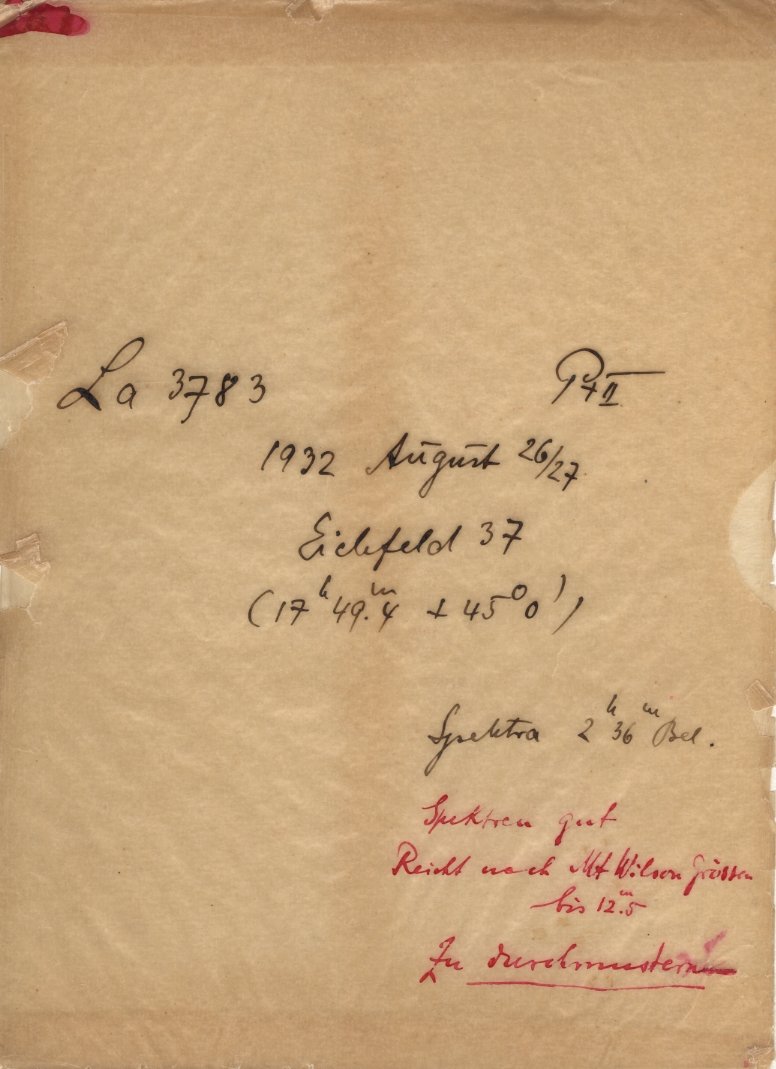 La 3783 Pr II
1932 August 26/27
Eichfeld 37
(17ʰ 49.ᵐ4 + 45° 0')
Spektra 2ʰ 36ᵐ Bel.
Spektren gut
Reicht nach Mt Wilson Grössen
bis 12.ᵐ5
Zu durchmustern